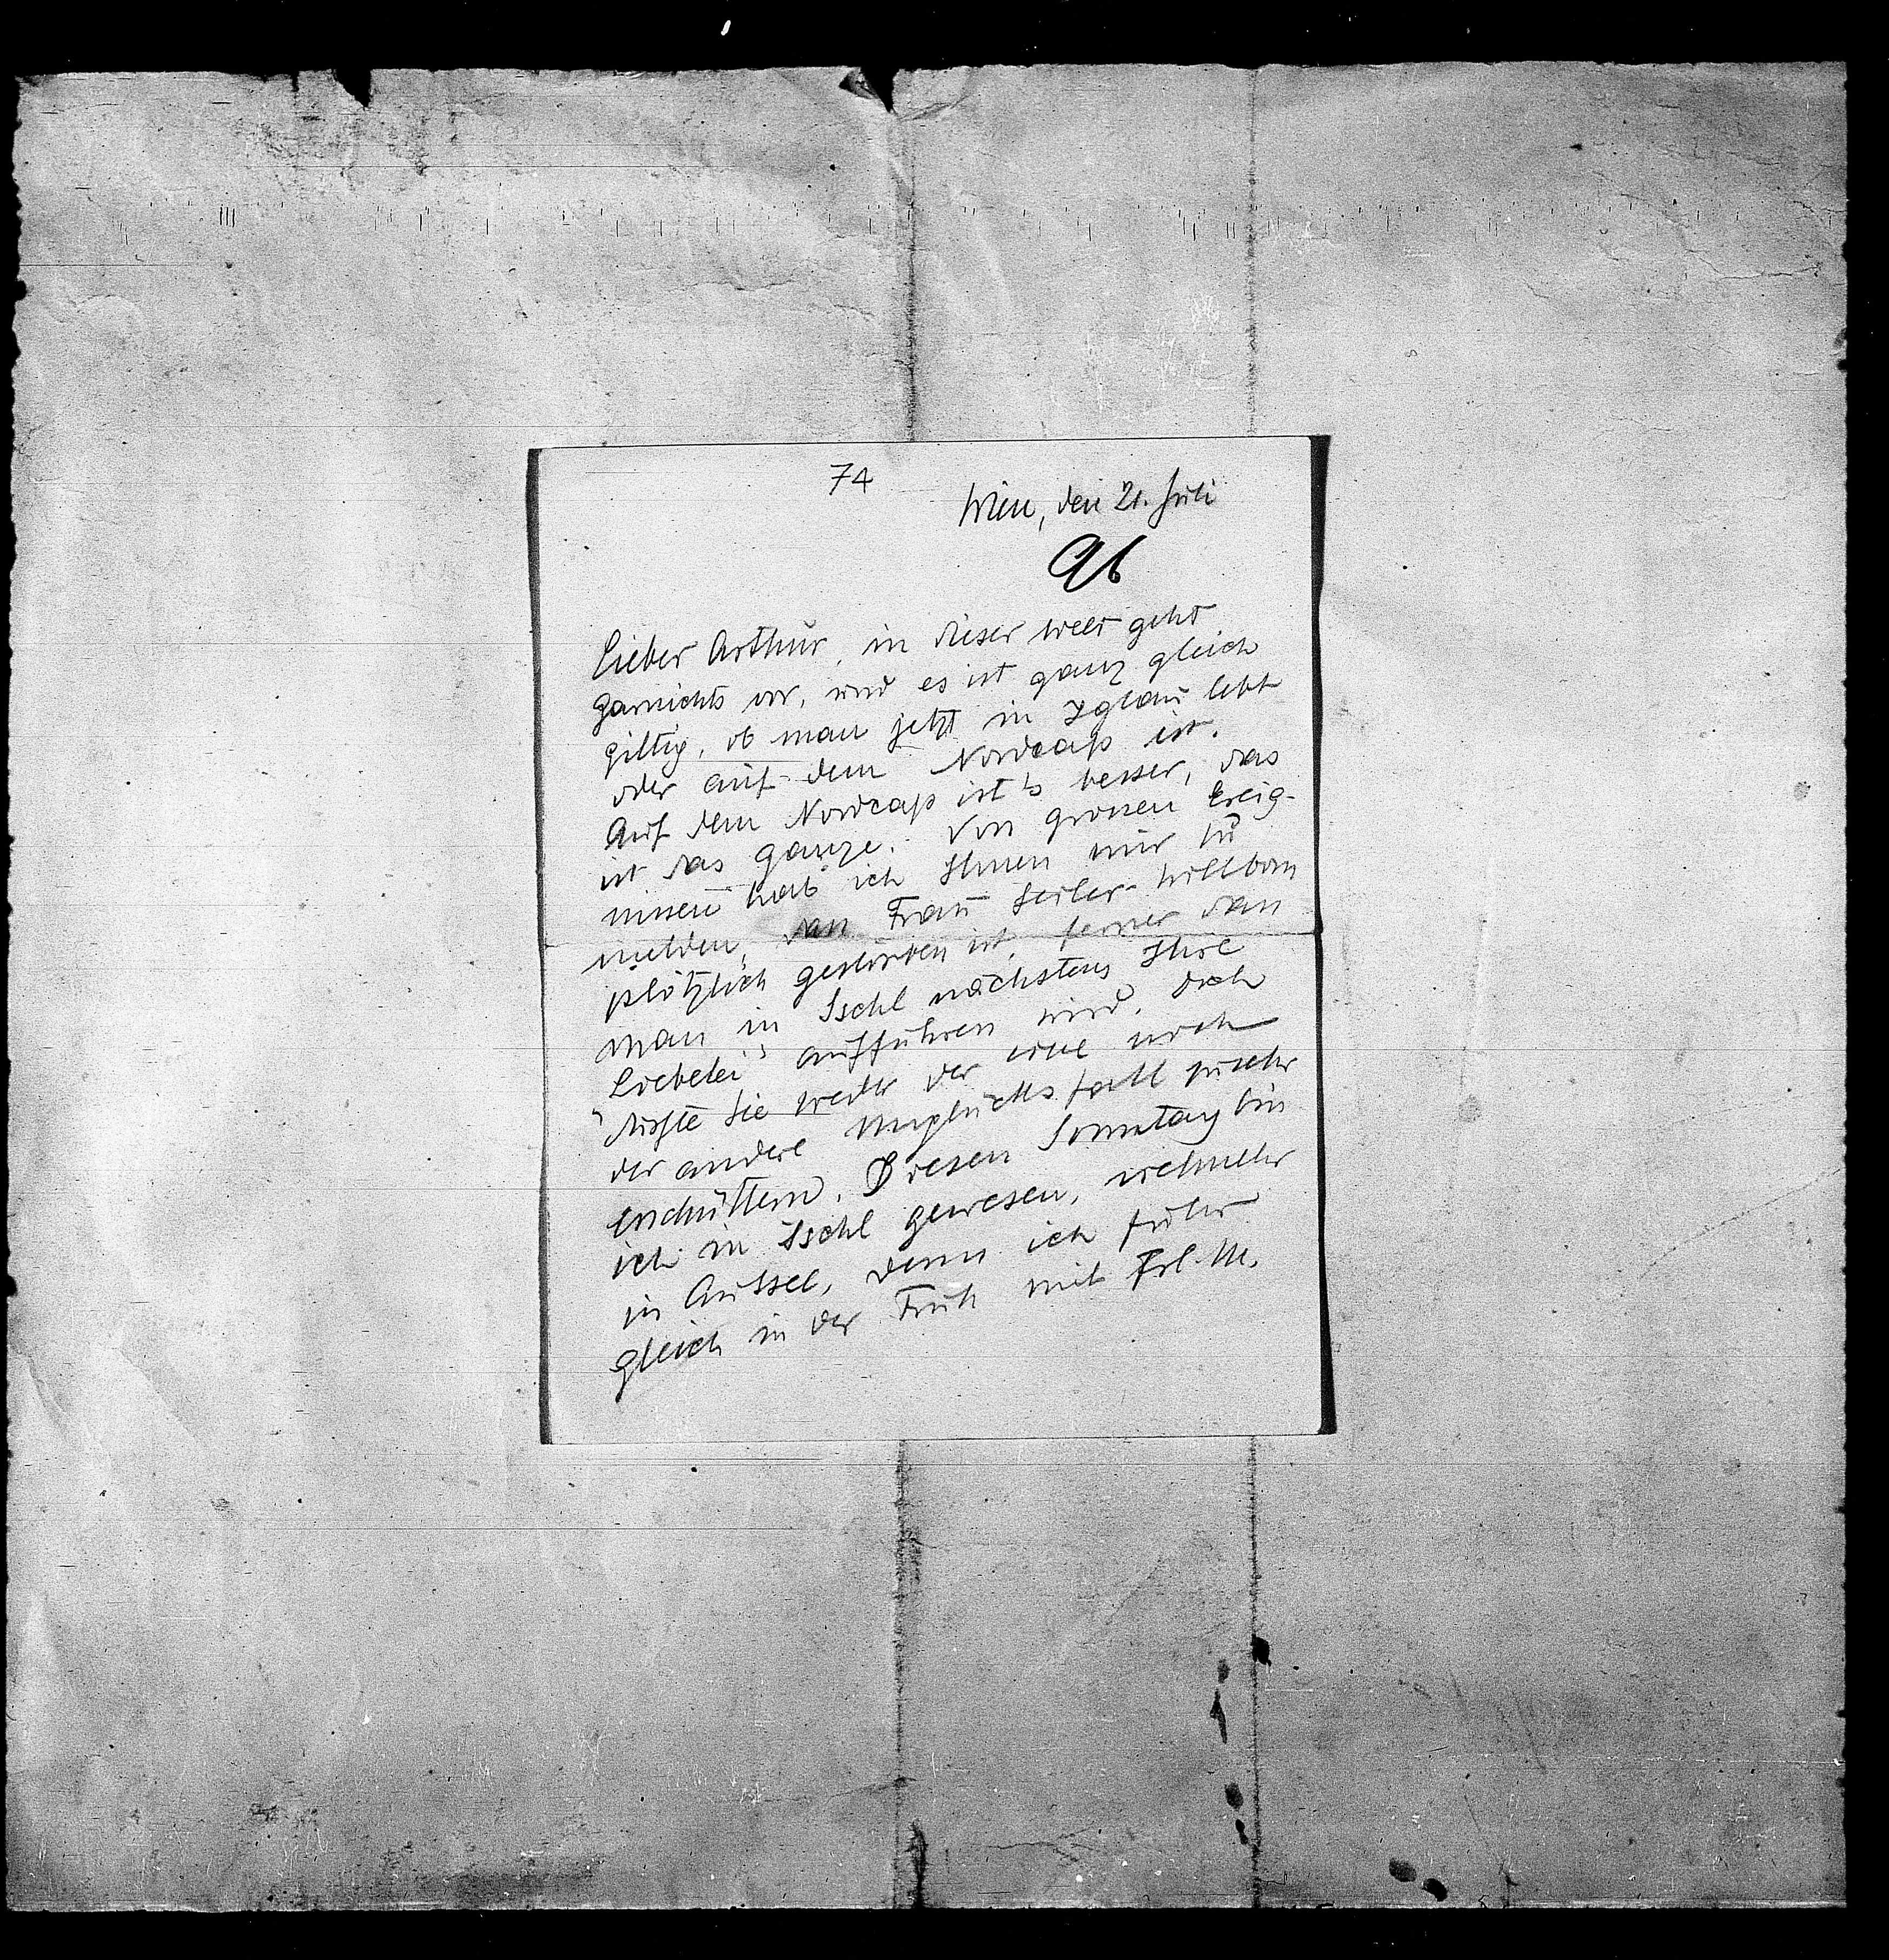 74
Wien, den 21. Juli
96
Lieber Arthur, in dieser Welt geht
garnichts vor, und es ist ganz gleich
giltig, ob man jetzt in Iglau lebt
oder auf dem Nordcap ist.
Auf dem Nordcap ist's besser, das
ist das ganze. Von grossen Ereig-
nissen hab' ich Ihnen nur zu
melden, dass Frau Seiler-Wellborn
plötzlich gestorben ist, ferner dass
man in Ischl nächstens Ihre
„Liebelei" aufführen wird. Doch
dürfte Sie weder der eine noch
der andere Unglücksfall zusehr
erschüttern. Diesen Sonntag bin
ich in Ischl gewesen, vielmehr
in Aussee, denn ich fuhr
gleich in der Früh mit Frl. M.